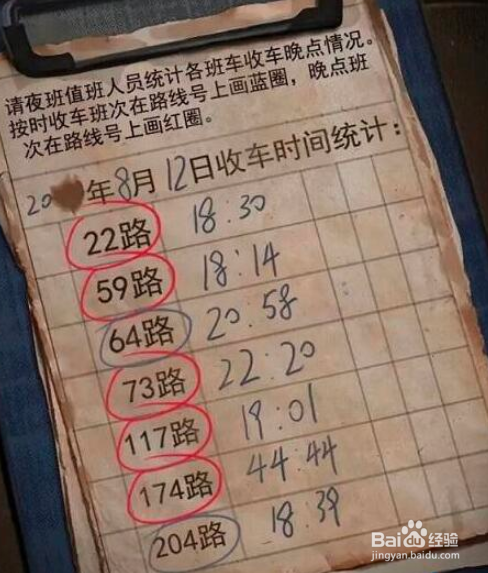 请夜班值班人员统计各班车收车晚点情况。
按时收车班次在路线号上画蓝圈，晚点班
次在路线号上画红圈。
20 年8月12日收车时间统计：
22路 18:30
59路 18:14
64路 20:58
73路 22:20
117路 19:01
174路 44:44
204路 18:39
Baidu经验
jingyan.baidu.com